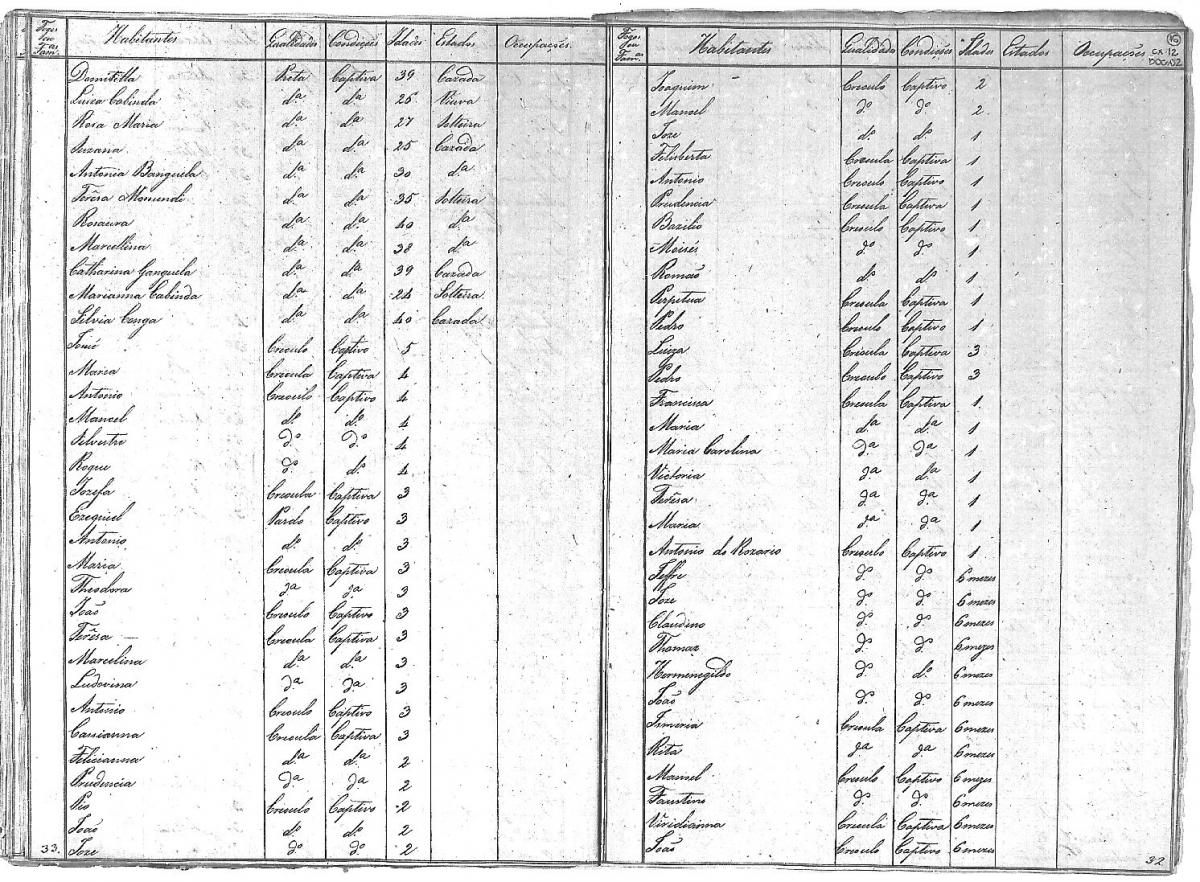 Fogos seu as Fam. Habitantes Qualidades Condições Idades Estados Occupações
Domitilla Preta Captiva 39 Cazada
Luiza Cabinda d.ª d.ª 26 Viuva
Roza Maria d.ª d.ª 27 Solteira
Suzana d.ª d.ª 25 Cazada
Antonia Banguela d.ª d.ª 30 d.ª
Terêsa d.ª d.ª 35 Solteira
Rosaura d.ª d.ª 40 d.ª
Marcellina d.ª d.ª 38 d.ª
Catharina Ganguela d.ª d.ª 39 Cazada
Marianna Cabinda d.ª d.ª 24 Solteira
Silvia Conga d.ª d.ª 40 Cazada
Tomé Creoulo Captivo 5
Maria Creoula Captiva 4
Antonio Creoulo Captivo 4
Manoel d.º d.º 4
Silvestre d.º d.º 4
Roque d.º d.º 4
Jozefa Creoula Captiva 3
Ezequiel Pardo Captivo 3
Antonio d.º d.º 3
Maria Creoula Captiva 3
Theodora d.ª d.ª 3
João Creoulo Captivo 3
Terêsa Creoula Captiva 3
Marcelina d.ª d.ª 3
Ludovina d.ª d.ª 3
Antonio Creoulo Captivo 3
Cassianna Creoula Captiva 3
Felicianna d.ª d.ª 2
Prudencia d.ª d.ª 2
Pio Creoulo Captivo 2
João d.º d.º 2
33. Joze d.º d.º 2
Fogos seu as Fam. Habitantes Qualidades Condições Idades Estados Occupações
16
CX 12
DOC 02
Joaquim Creoulo Captivo 2
Manoel d.º d.º 2
Joze d.º d.º 1
Felisberta Creoula Captiva 1
Antonio Creoulo Captivo 1
Prudencia Creoula Captiva 1
Bazilio Creoulo Captivo 1
Moisés d.º d.º 1
Romaõ d.º d.º 1
Perpetua Creoula Captiva 1
Pedro Creoulo Captivo 1
Luiza Creoula Captiva 3
Pedro Creoulo Captivo 3
Francisca Creoula Captiva 1
Maria d.ª d.ª 1
Maria Carolina d.ª d.ª 1
Victoria d.ª d.ª 1
Terêsa d.ª d.ª 1
Maria d.ª d.ª 1
Antonio do Rozario Creoulo Captivo 1
d.º d.º 6 mezes
Joze d.º d.º 6 mezes
Claudino d.º d.º 6 mezes
Thomaz d.º d.º 6 mezes
Hermenegildo d.º d.º 6 mezes
João d.º d.º 6 mezes
Creoula Captiva 6 mezes
Rita d.ª d.ª 6 mezes
Manoel Creoulo Captivo 6 mezes
Faustino d.º d.º 6 mezes
Viridianna Creoula Captiva 6 mezes
João Creoulo Captivo 6 mezes
32